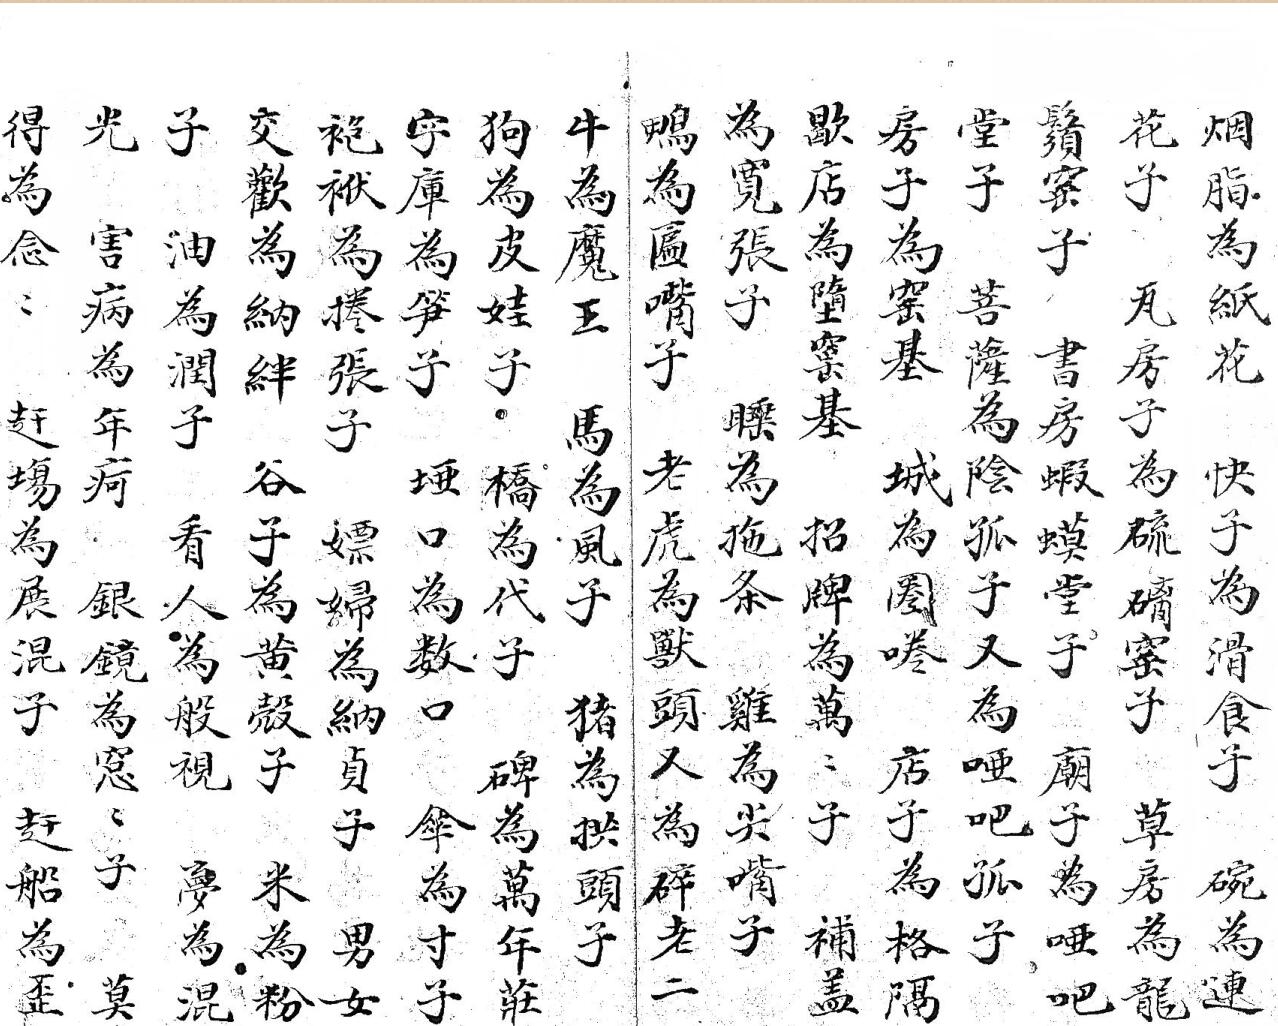 烟脂為紙花　快子為滑食子　碗為連
花子　瓦房子為硫磺窑子　草房為龍
鬚窑子　書房蝦蟆堂子　廟子為啞吧
堂子　菩薩為陰孤子又為啞吧孤子
房子為窑基　城為圏　店子為格隔
歇店為墮窑基　招牌為萬〻子　補盖
為寬張子　為拖条　雞為尖嘴子
鴨為匾嘴子　老虎為獸頭又為辟老二
牛為魔王　馬為風子　猪為拱頭子
狗為皮娃子　橋為代子　碑為萬年莊
字庫為笋子　埡口為数口　傘為寸子
袍袱為捲張子　嫖婦為納貞子　男女
交歡為納絆　谷子為黄殼子　米為粉
子　油為潤子　看人為般視　夢為混
光　害病為年　銀鏡為窓〻子　莫
得為念〻　赶塲為展混子　赶船為歪